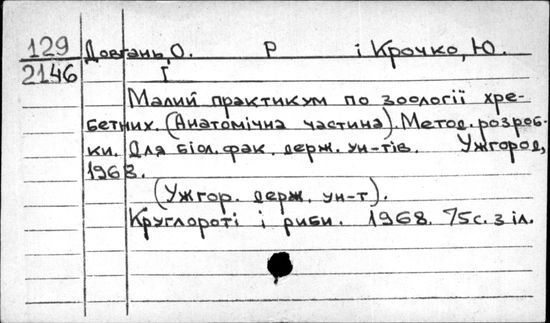 129 Довгань, О. Р і Крочко, Ю.
2146 Г
Малий практикум по зоології хре-
бетних. (Анатомічна частина). Метод. розроб-
ки. Для біол. фак. держ. ун-тів. Ужгород,
1968.
(Ужгор. держ. ун-т).
Круглороті і риби. 1968. 75с. з іл.